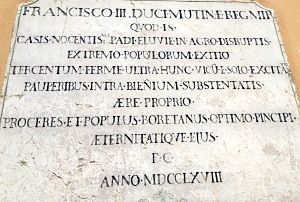 FRANCISCO III. DUCI MUTINE REG MIR
QUOD IS
CASIS NOCENTIS PADI ELUVIE IN AGRO DISRUPTIS
EXTREMO POPULORUM EXITIO
TERCENTUM FERME ULTRA HUNC VICU E SOLO EXCITA
PAUPERIBUS INTRA BIENIUM SUBSTENTATIS
ÆRE PROPRIO
PROCERES ET POPULUS BORETANUS OPTIMO PINCIPI
ÆTERNITATIQVE EJUS
P C
ANNO MDCCLXVIII